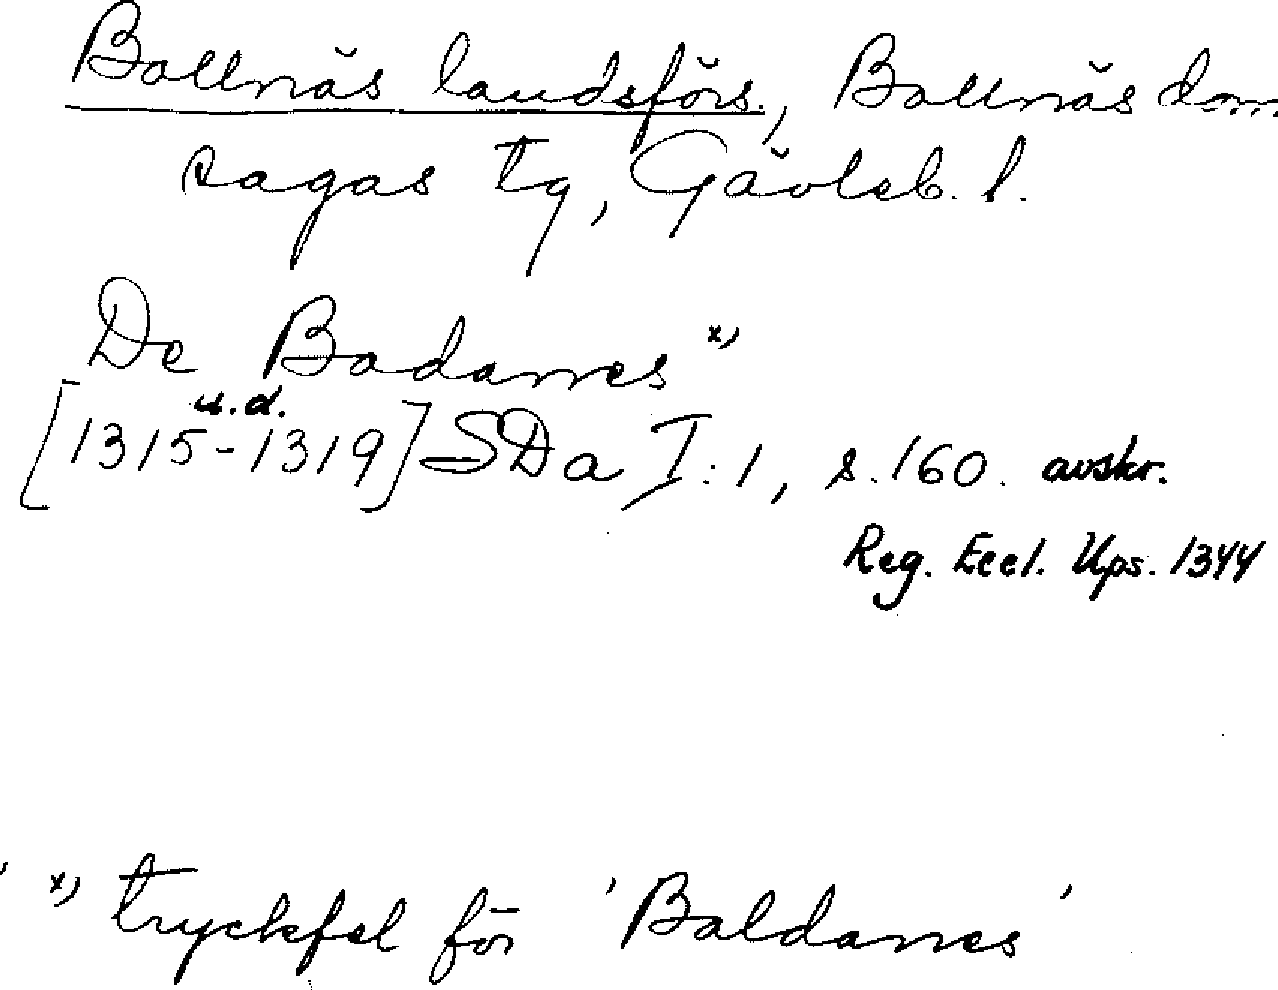 Bollnäs landsförs., Bollnäs dom
sagas tg, Gävleb. l.
De Bodanes x)
u.d.
[1315-1319] SDa I:1, s. 160. avskr.
Reg. Eccl. Ups. 1344
x) tryckfel för 'Baldanes'